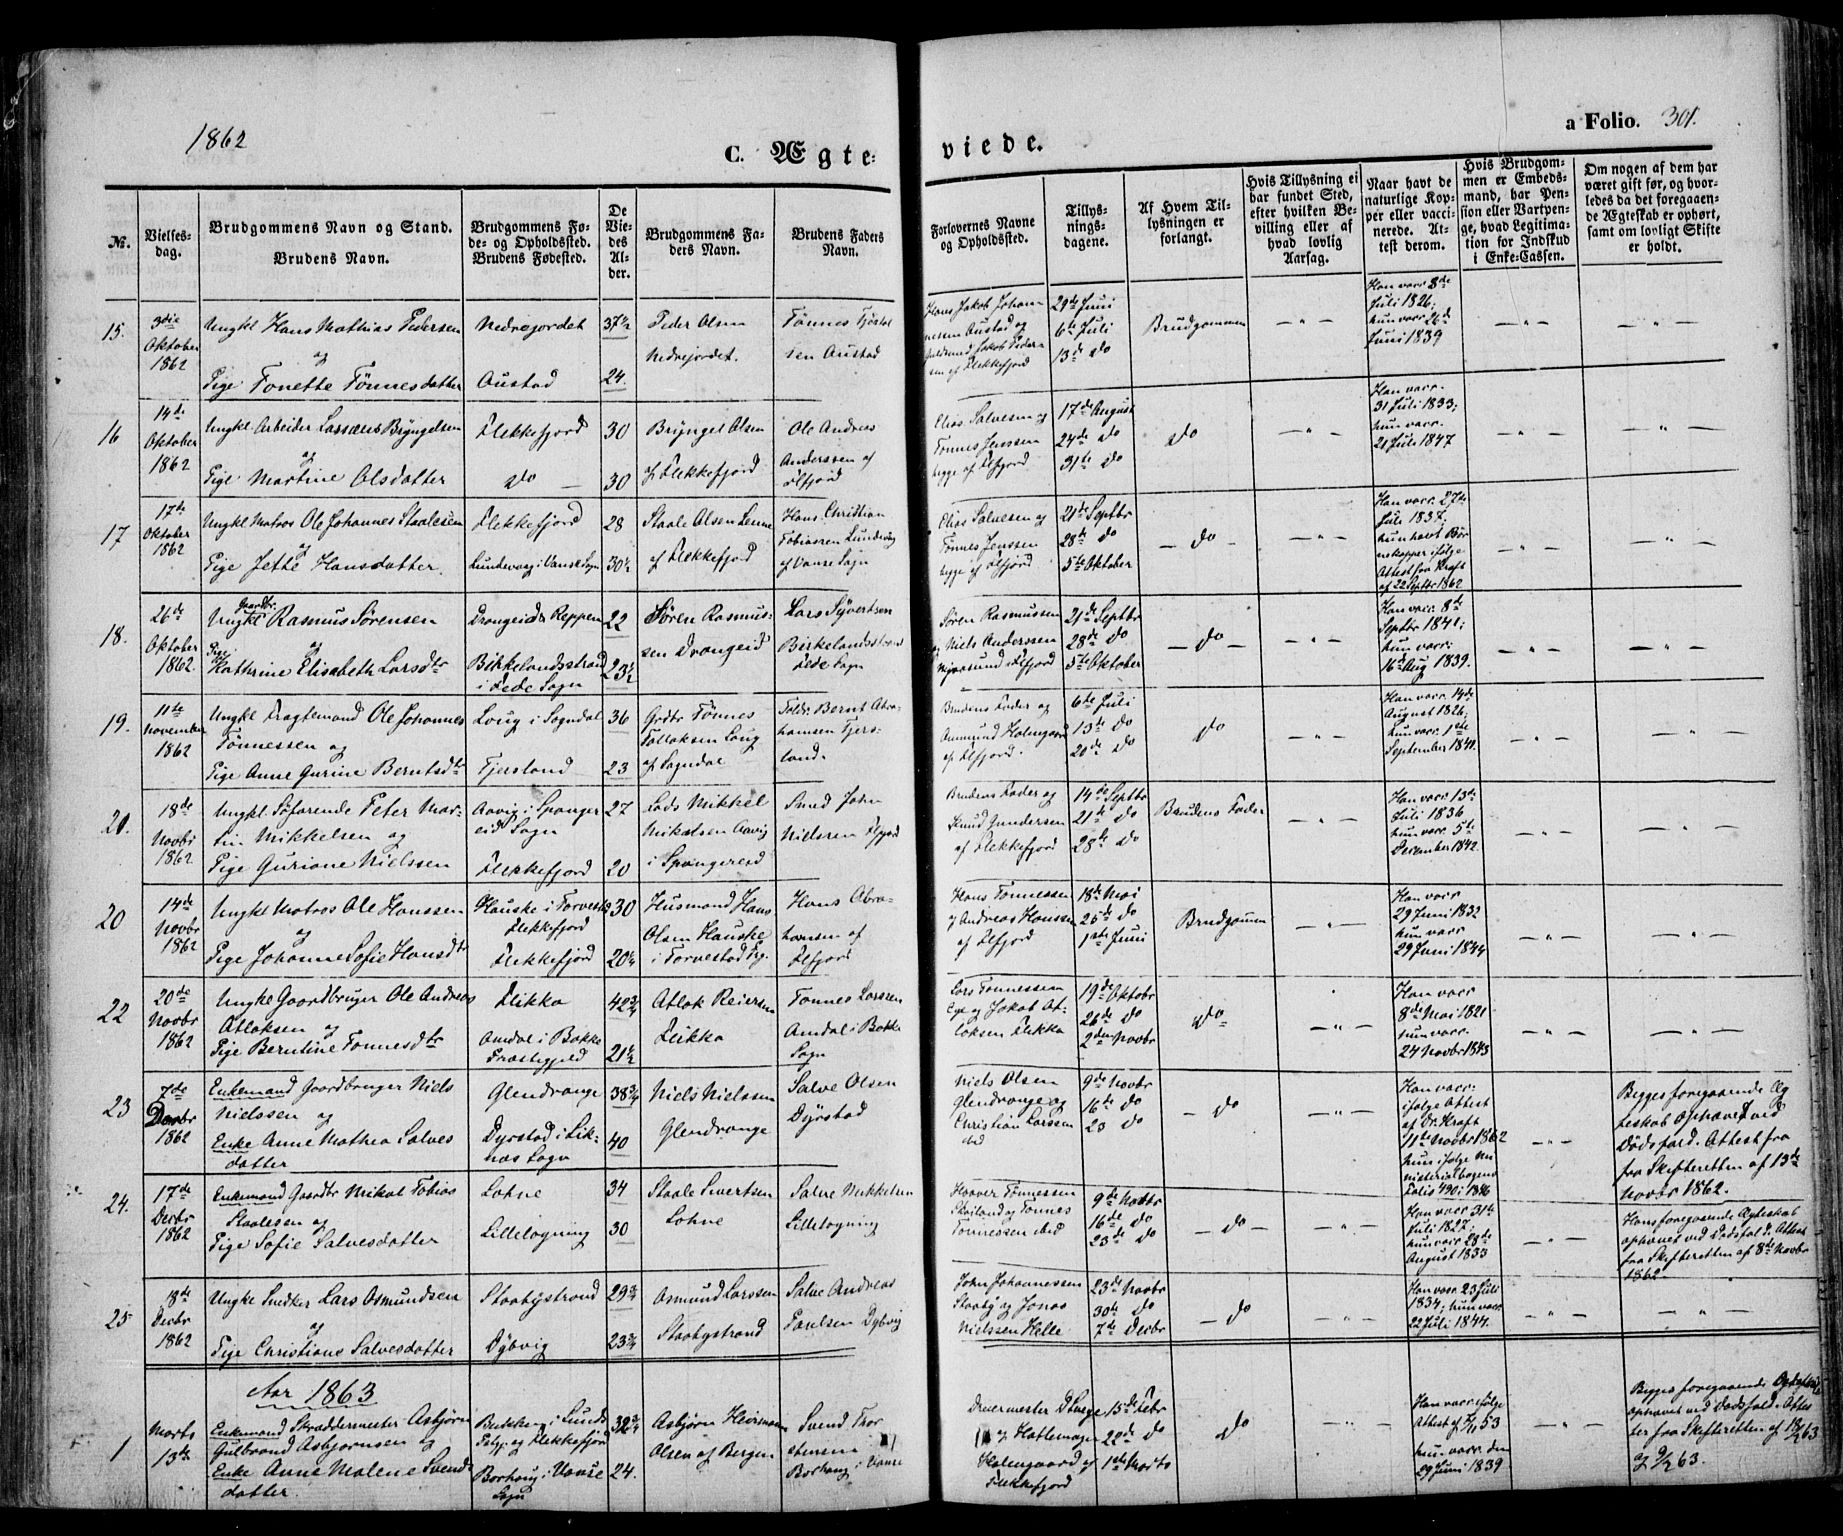 1862
C. Ægte-
viede.
a Folio. 301.
No.
Vielses-
dag.
Brudgommens Navn og Stand.
Brudens Navn.
Brudgommens Fø-
de- og Opholdssted.
Brudens Fødested.
De
Vie-
des
Al-
der.
Brudgommens Fa-
ders Navn.
Brudens Faders
Navn.
Forlovernes Navne
og Opholdssted.
Tillys-
nings-
dagene.
Af Hvem Til-
lysningen er
forlangt.
Hvis Tillysning ei
har fundet Sted,
efter hvilken Be-
villing eller af
hvad lovlig
Aarsag.
Naar havt de
naturlige Kop-
per eller vacci-
nerede. At-
test derom.
Hvis Brudgom-
men er Embeds-
mand, har Pen-
sion eller Vartpen-
ge, hvad Legitima-
tion for Indskud
i Enke-Cassen.
Om nogen af dem har
været gift før, og hvor-
ledes da det foregaaen-
de Ægteskab er ophørt,
samt om lovligt Skifte
er holdt.
15.
3die
Oktober
1862
Ungkl Hans Mathias Pedersen
og
Pige Tonette Tønnesdatter
Nedrejordet
Austad
37½
24.
Peder Olsen
Nedrejordet.
Tønnes Tjøstol
sen Austad
Hans Jakob Johan
nesen Austad og
Jakob Peder
sen af Flekkefjord
29de Juni
6te Juli
13de do
Brudgommen
Han vacc 8de
Juli 1826;
hun vacc 26de
Juni 1839
16
14de
Oktober
1862
Ungkl Arbeider Lassæus Bryngelsen
og
Pige Martine Olsdatter
Flekkefjord
do
30
30
Bryngel Olsen
af Flekkefjord
Ole Andreas
Anderssen af
Flfjord
Elias Salvesen og
Tønnes Jenssen
begge af Flfjord
17de August
24de do
31te do
do
Han vacc.
31 Juli 1833;
hun vacc.
21 Juli 1847
17
17de
Oktober
1862
Ungkl Matros Ole Johannes Staalesen
og
Pige Jette Hansdatter
Flekkefjord
Lundevaag i Vanse Sogn
28
30½
Staale Olsen Lenne
af Flekkefjord
Hans Christian
Tobiassen Lundevaag
af Vanse Sogn
Elias Salvesen og
Tønnes Jenssen
begge af Flfjord
21de Septbr
28de do
5te Oktober
do
Han vacc. 27de
Juli 1837;
hun havt Bør
nekopper ifølge
Attest fra Kraft
af 22 Septbr 1862
18.
26de
Oktober
1862.
Ungkl Gaardbr. Rasmus Sørensen
og
Pige Kathrine Elisabeth Larsdtr
Drangeid de Keppen
Birkelandsstrand
i Fede Sogn
22
23½
Søren Rasmus-
sen Drangeid
Lars Syvertsen
Birkelandsstrand
Fede Sogn
Søren Rasmussen
Niels Anderssen
21de Septbr
28de do
5te Oktober
do
Han vacc. 8de
Septbr 1841;
hun vacc.
16de Aug 1839.
19.
11te
November
1862
Ungkl Fragtemand Ole Johannes
Tønnessen og
Pige Anne Gurine Berntsdtr
Loug i Sogndal
Fjersland
36
23
Grdbr Tønnes
Tollaksen Loug
af Sogndal
Foldr. Bernt Abra
hamsen Fjers-
land.
Brudens Fader og
Aanund Holmgaard
af Flfjord.
6te Juli
13de do
20de do
do
Han vacc. 14de
August 1826;
hun vacc. 1ste
September 1841.
21.
18de
Novbr
1862
Ungkl Søfarende Peter Mar-
tin Mikkelsen og
Pige Guriane Nielssen
Aavig i Spanger
eid Sogn
Flekkefjord
27
20
Lods Mikkel
Nikolsen Aavig
i Spangereid
Smed John
Nielssen Flfjord
Brudens Fader og
Knud Gundersen
af Flekkefjord
14de Septbr
21de do
28de do
Brudens Fader
Han vacc 13de
Juli 1836
hun vacc. 5te
December 1842.
20
14de
Novbr
1862
Ungkl Matros Ole Hanssen
og
Pige Johanne Sofie Hansdtr
Hauske i Torvested
Flekkefjord
Flekkefjord
30
20¼
Husmand Hans
Olsen Hauske
i Torvestad Pg.
Hans Abra-
hamsen af
Flfjord
Hans Tønnessen
og Andreas Hanssen
af Flfjord
18de Mai
25de do
1ste Juni
Brudgommen
Han vacc
29 Juni 1832
hun vacc
29 Juni 1844
22
20de
Novbr
1862
Ungkl Gaardbruger Ole Andreas
Atlaksen og
Pige Berntine Tønnesdtr
Flikka
Aamdal i Bakke
Præstegjeld
42¾
21½
Atlak Reiersen
Flikka
Tønnes Larssen
Aamdal i Bakke
Sogn
Lars Tønnessen
Eye og Jakob At-
laksen Flikka
19de Oktobr
26de do
2den Novbr
do
Han vacc
8de Mai 1821
hun vacc.
24 Novbr 1843
23
7de
Decbr
1862
Enkemand Gaardbruger Niels
Nielssen og
Enke Anne Mathea Salves
datter
Glendrange
Dyrstad i Lik-
nes Sogn
38¾
40
Niels Nielssen
Glendrange
Salve Olsen
Dyrstad
Niels Olsen
Glendrange og
Christian Larssen
ibd
9de Novbr
16de do
23 do
do
Han vacc:
ifølge Attest
af Dr. Kraft
11te Novbr 1862
hun ifølge Mi
nisterialbogens
Folio 490 i 1846
Begges foregaaende Æg
teskab ophævet ved
Dødsfald. Attest fra
fra Skifteretten af 13de
Novbr 1862.
24.
17de
Decbr
1862
Enkemand Gaardbr Nikol Tobias
Staalesen og
Pige Sofie Salvesdatter
Lohne
Lilleløgning
34
30
Staale Sivertsen
Lohne
Salve Mikkelsen
Lilleløgning
Haaver Tønnessen
Skeiland og Tønnes
Tønnessen ibid
9de Novbr
16de do
23de do
do
Han vacc 31te
Juli 1827;
hun vacc. 28de
August 1833
Hans foregaaende Ægteskab
ophævet ved Dødsfald. Attest
fra Skifteretten af 8de Novbr
1862.
25
18de
Decbr
1862
Ungkl Snedker Lars Osmundsen
og
Pige Christiane Salvesdatter
Staabystrand
Dybvig
29¾
23¾
Osmund Larssen
Staabystrand
Salve Andreas
Paulsen Dybvig
John Johannessen
Staaby og Jonas
Nielssen Helle
23de Novbr
30te do
7de Decbr
do
Han vacc 23 Juli
1834; hun vacc.
22 Juli 1844.
Aar 1863
1
Marts
13de
Enkemand Skræddermester Asbjørn
Gulbrand Asbjørnsen og
Enke Anne Malene Svends
datter.
Bakke i Lunds
Pstgj. og Flekkefjord
Borhaug i Vanse
Sogn
32¾
24.
Asbjørn
Olsen af Bergen
Svend Thor
stensen
Borhaug i Vanse
Dreiermester
og Hattemager
Holmgaard af
Flekkefjord
15de Febr
22de do
1ste Marts
do
Han vacc. ifølge
Attest af
53
hun vacc. den
29 Juni 1839
Begges foregaaende Ægteskab
ophævet ved Dødsfald. Attes
ter fra Skifteretten af